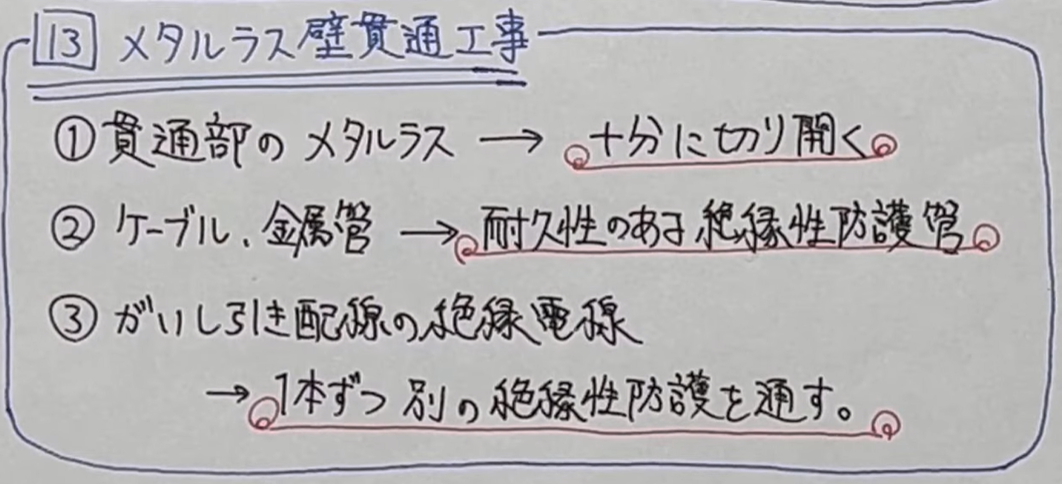 13 メタルラス壁貫通工事
① 貫通部のメタルラス → 十分に切り開く
② ケーブル、金属管 → 耐久性のある絶縁性防護管
③ がいし引き配線の絶縁電線
→ 1本ずつ別の絶縁性防護を通す。